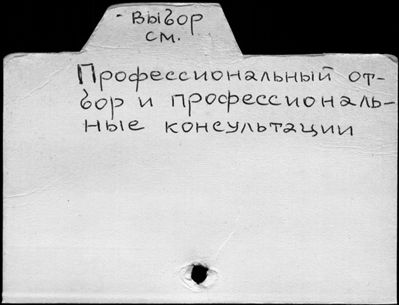 - Выбор
см.
Профессиональный от-
бор и профессиональ-
ные консультации